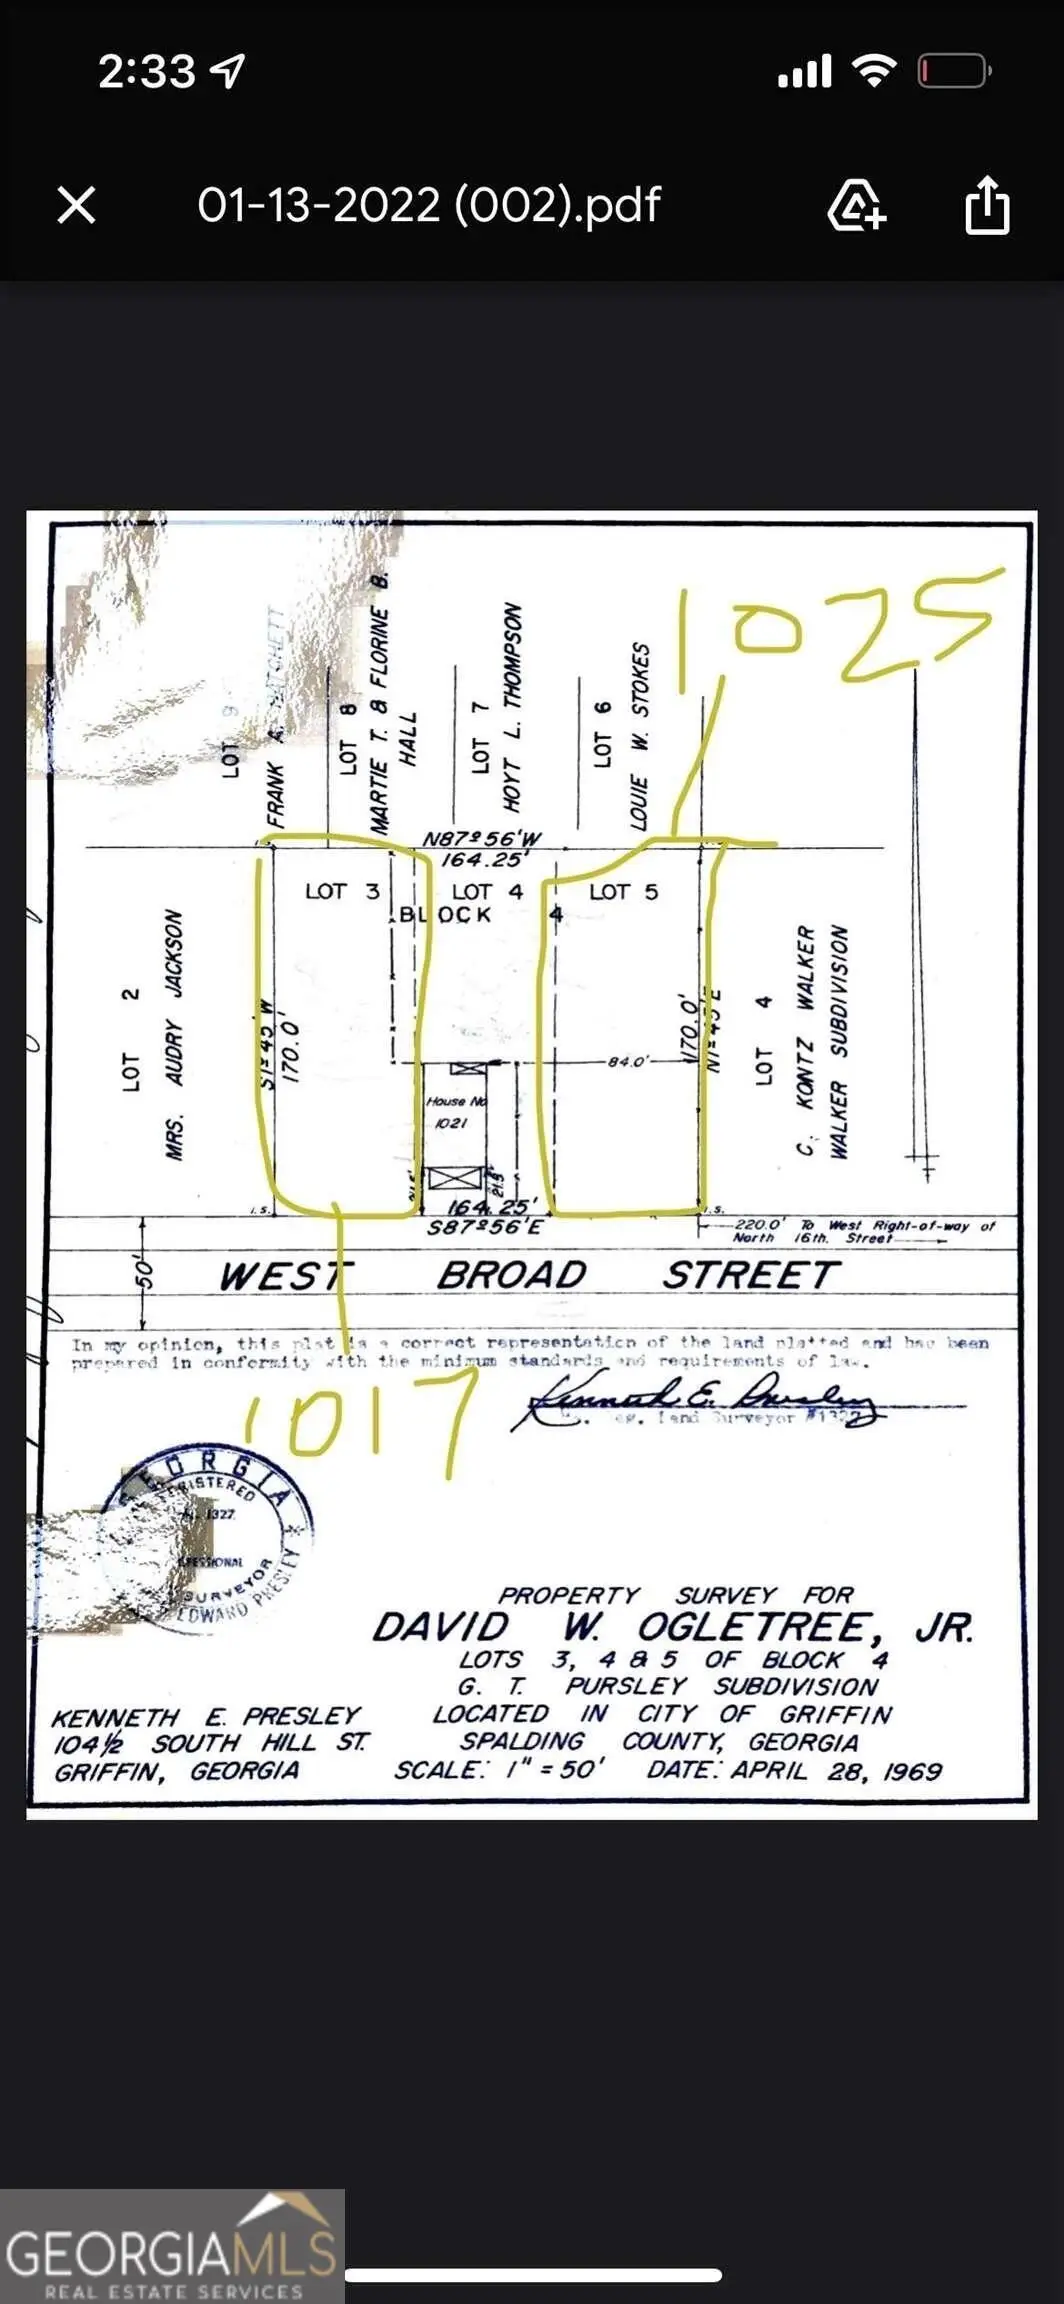 2:33
01-13-2022 (002).pdf
1025
LOT 9
FRANK A.
LOT 8
MARTIE T. & FLORINE B.
HALL
LOT 7
HOYT L. THOMPSON
LOT 6
LOUIE W. STOKES
N87º56'W
164.25'
LOT 3
LOT 4
LOT 5
BLOCK 4
LOT 2
MRS. AUDRY JACKSON
S1º45'W
170.0'
84.0'
170.0'
N1º45'E
LOT 4
C. KONTZ WALKER
WALKER SUBDIVISION
House No
1021
21.5'
164.25'
S87º56'E
I.S.
I.S.
220.0' To West Right-of-way of
North 16th. Street
50'
WEST BROAD STREET
In my opinion, this plat is a correct representation of the land platted and has been
prepared in conformity with the minimum standards and requirements of law.
Kenneth E. Presley
Reg. Land Surveyor #1327
1017
GEORGIA
REGISTERED
No. 1327
PROFESSIONAL
SURVEYOR
EDWARD PRESLEY
PROPERTY SURVEY FOR
DAVID W. OGLETREE, JR.
LOTS 3, 4 & 5 OF BLOCK 4
G. T. PURSLEY SUBDIVISION
LOCATED IN CITY OF GRIFFIN
SPALDING COUNTY, GEORGIA
SCALE: 1" = 50' DATE: APRIL 28, 1969
KENNETH E. PRESLEY
104½ SOUTH HILL ST.
GRIFFIN, GEORGIA
GEORGIAMLS
REAL ESTATE SERVICES